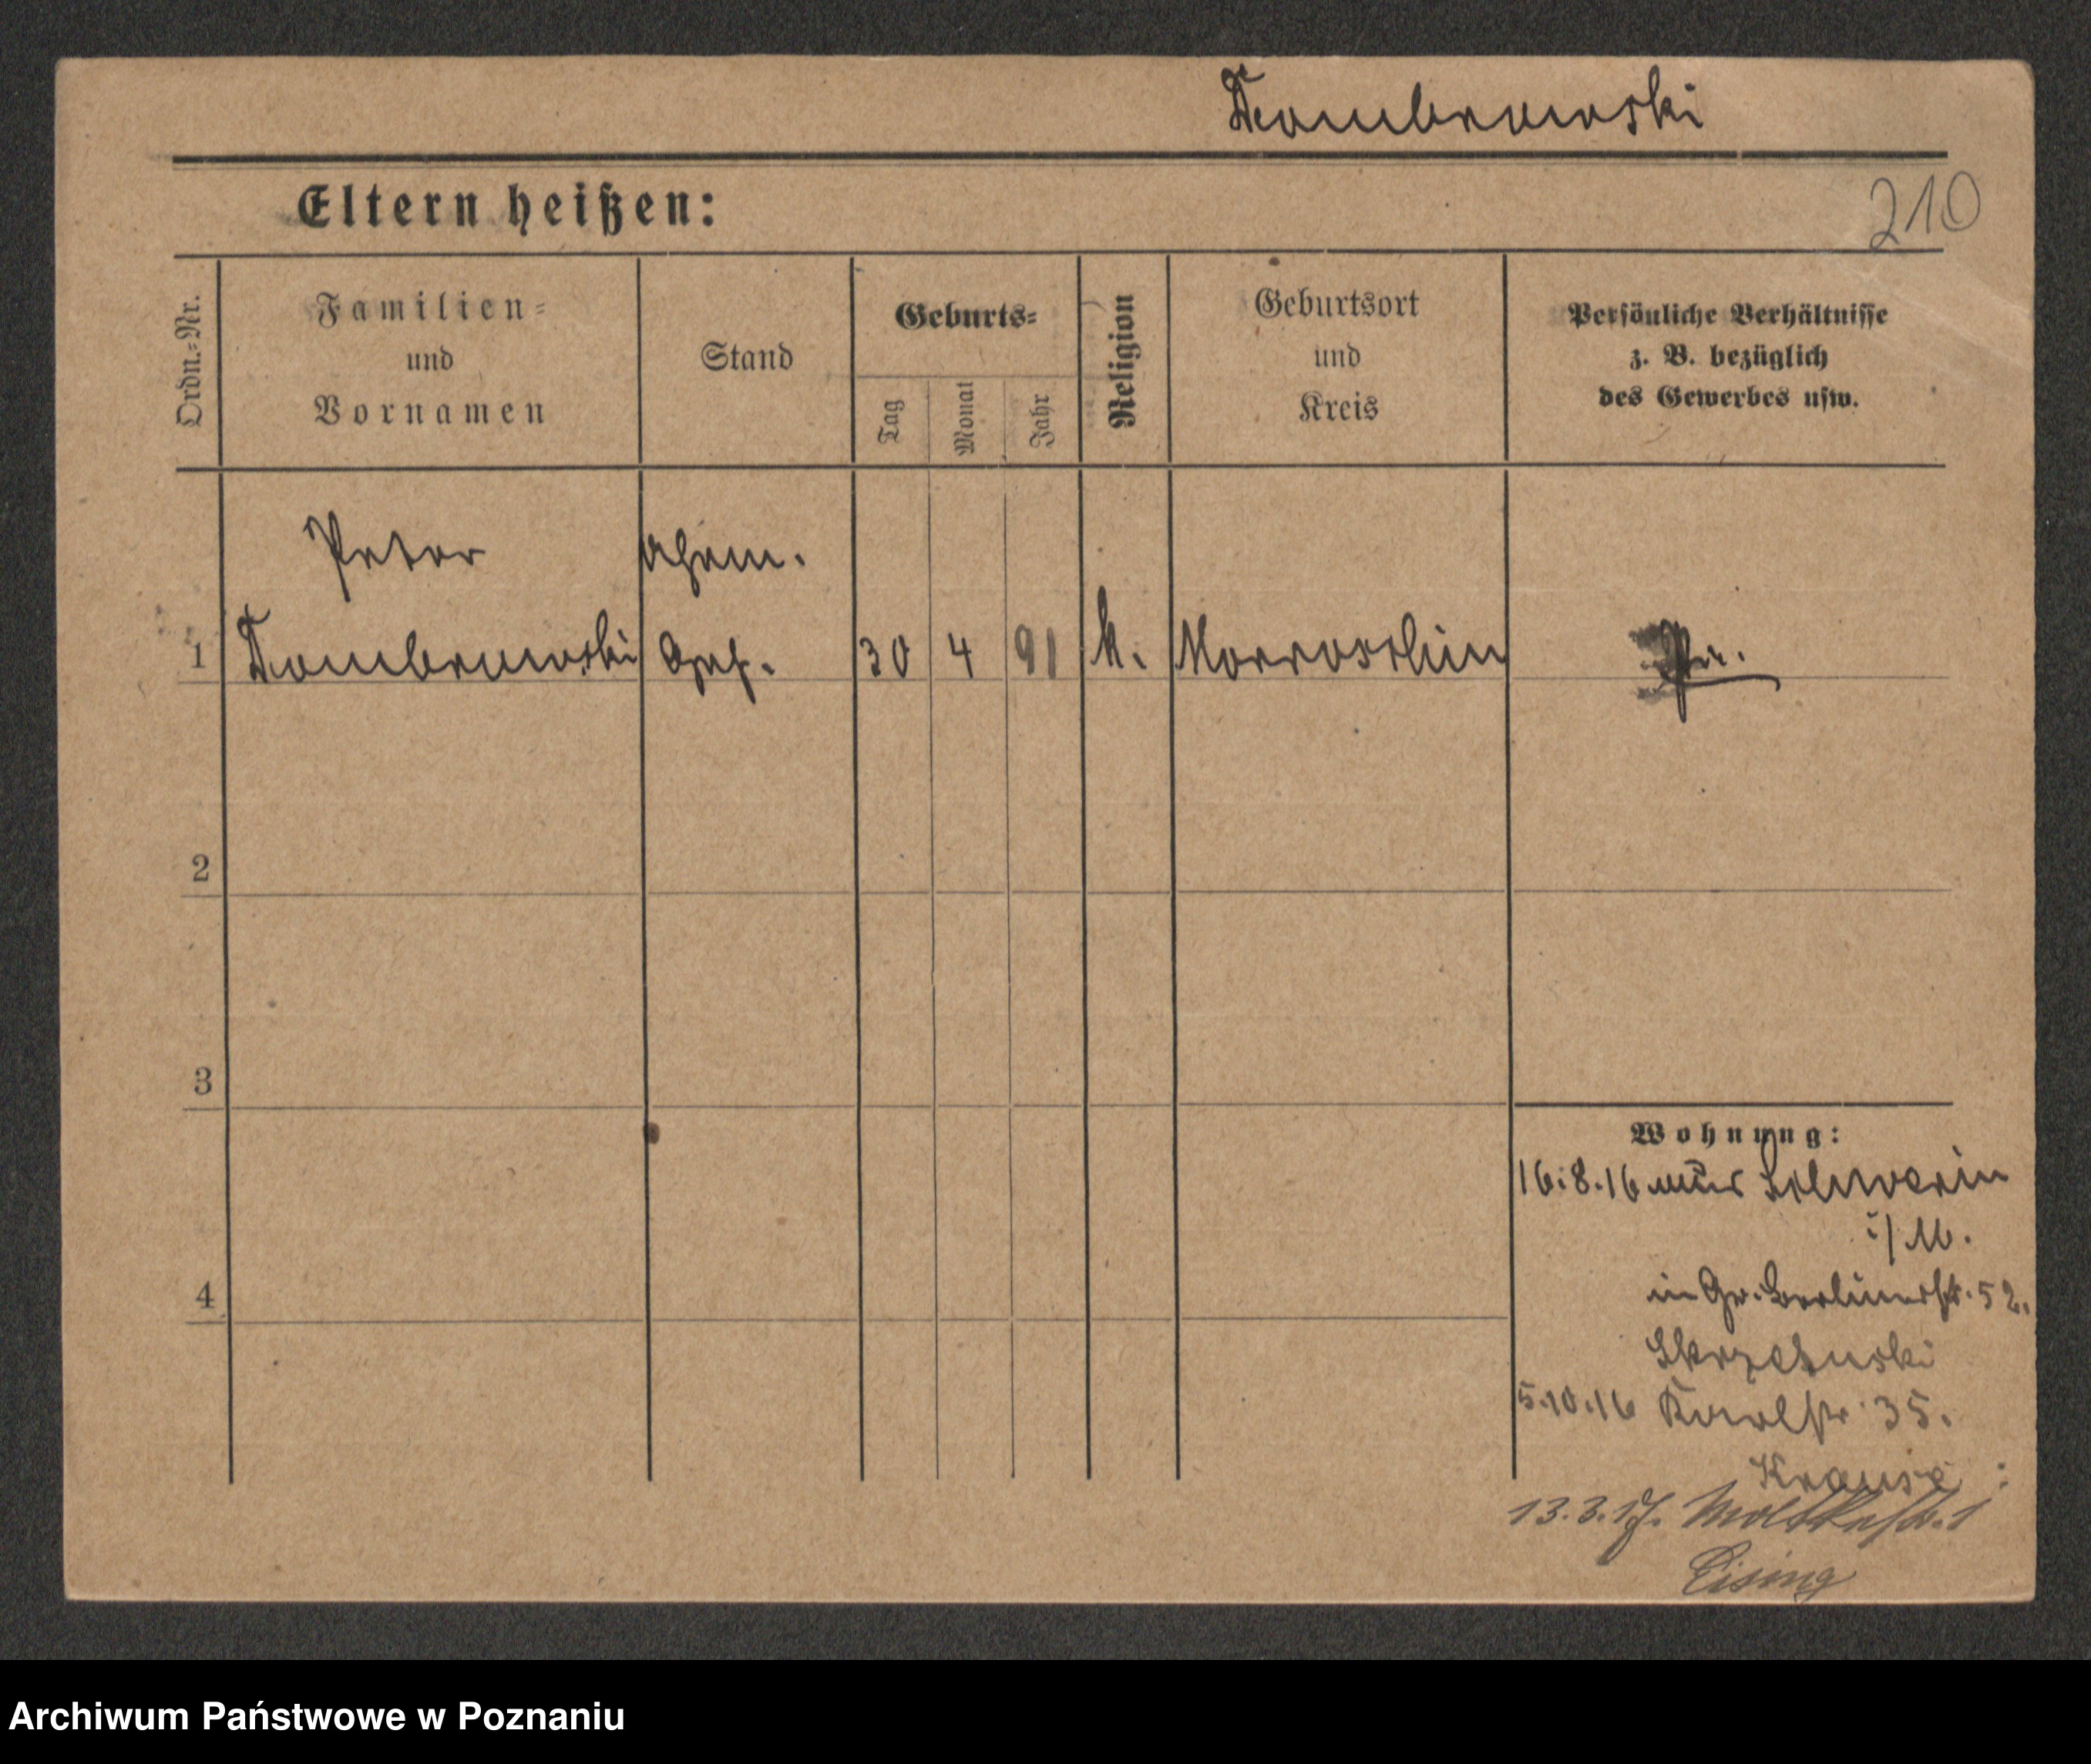 Dombrowski
Eltern heißen:
210
Ordn.-Nr.
Familien-
und
Vornamen
Stand
Geburts-
Tag
Monat
Jahr
Religion
Geburtsort
und
Kreis
Persönliche Verhältnisse
z. B. bezüglich
des Gewerbes usw.
Peter
1 Dombrowski 30 4 91 k. Morroschin Pr.
2
3
4
Wohnung:
16.8.16 aus Schwerin
i/M.
in Gr. Berlinerstr. 52.
5.10.16 35.
Krause
13.3.17. Moltkestr. 1
Eising
Archiwum Państwowe w Poznaniu